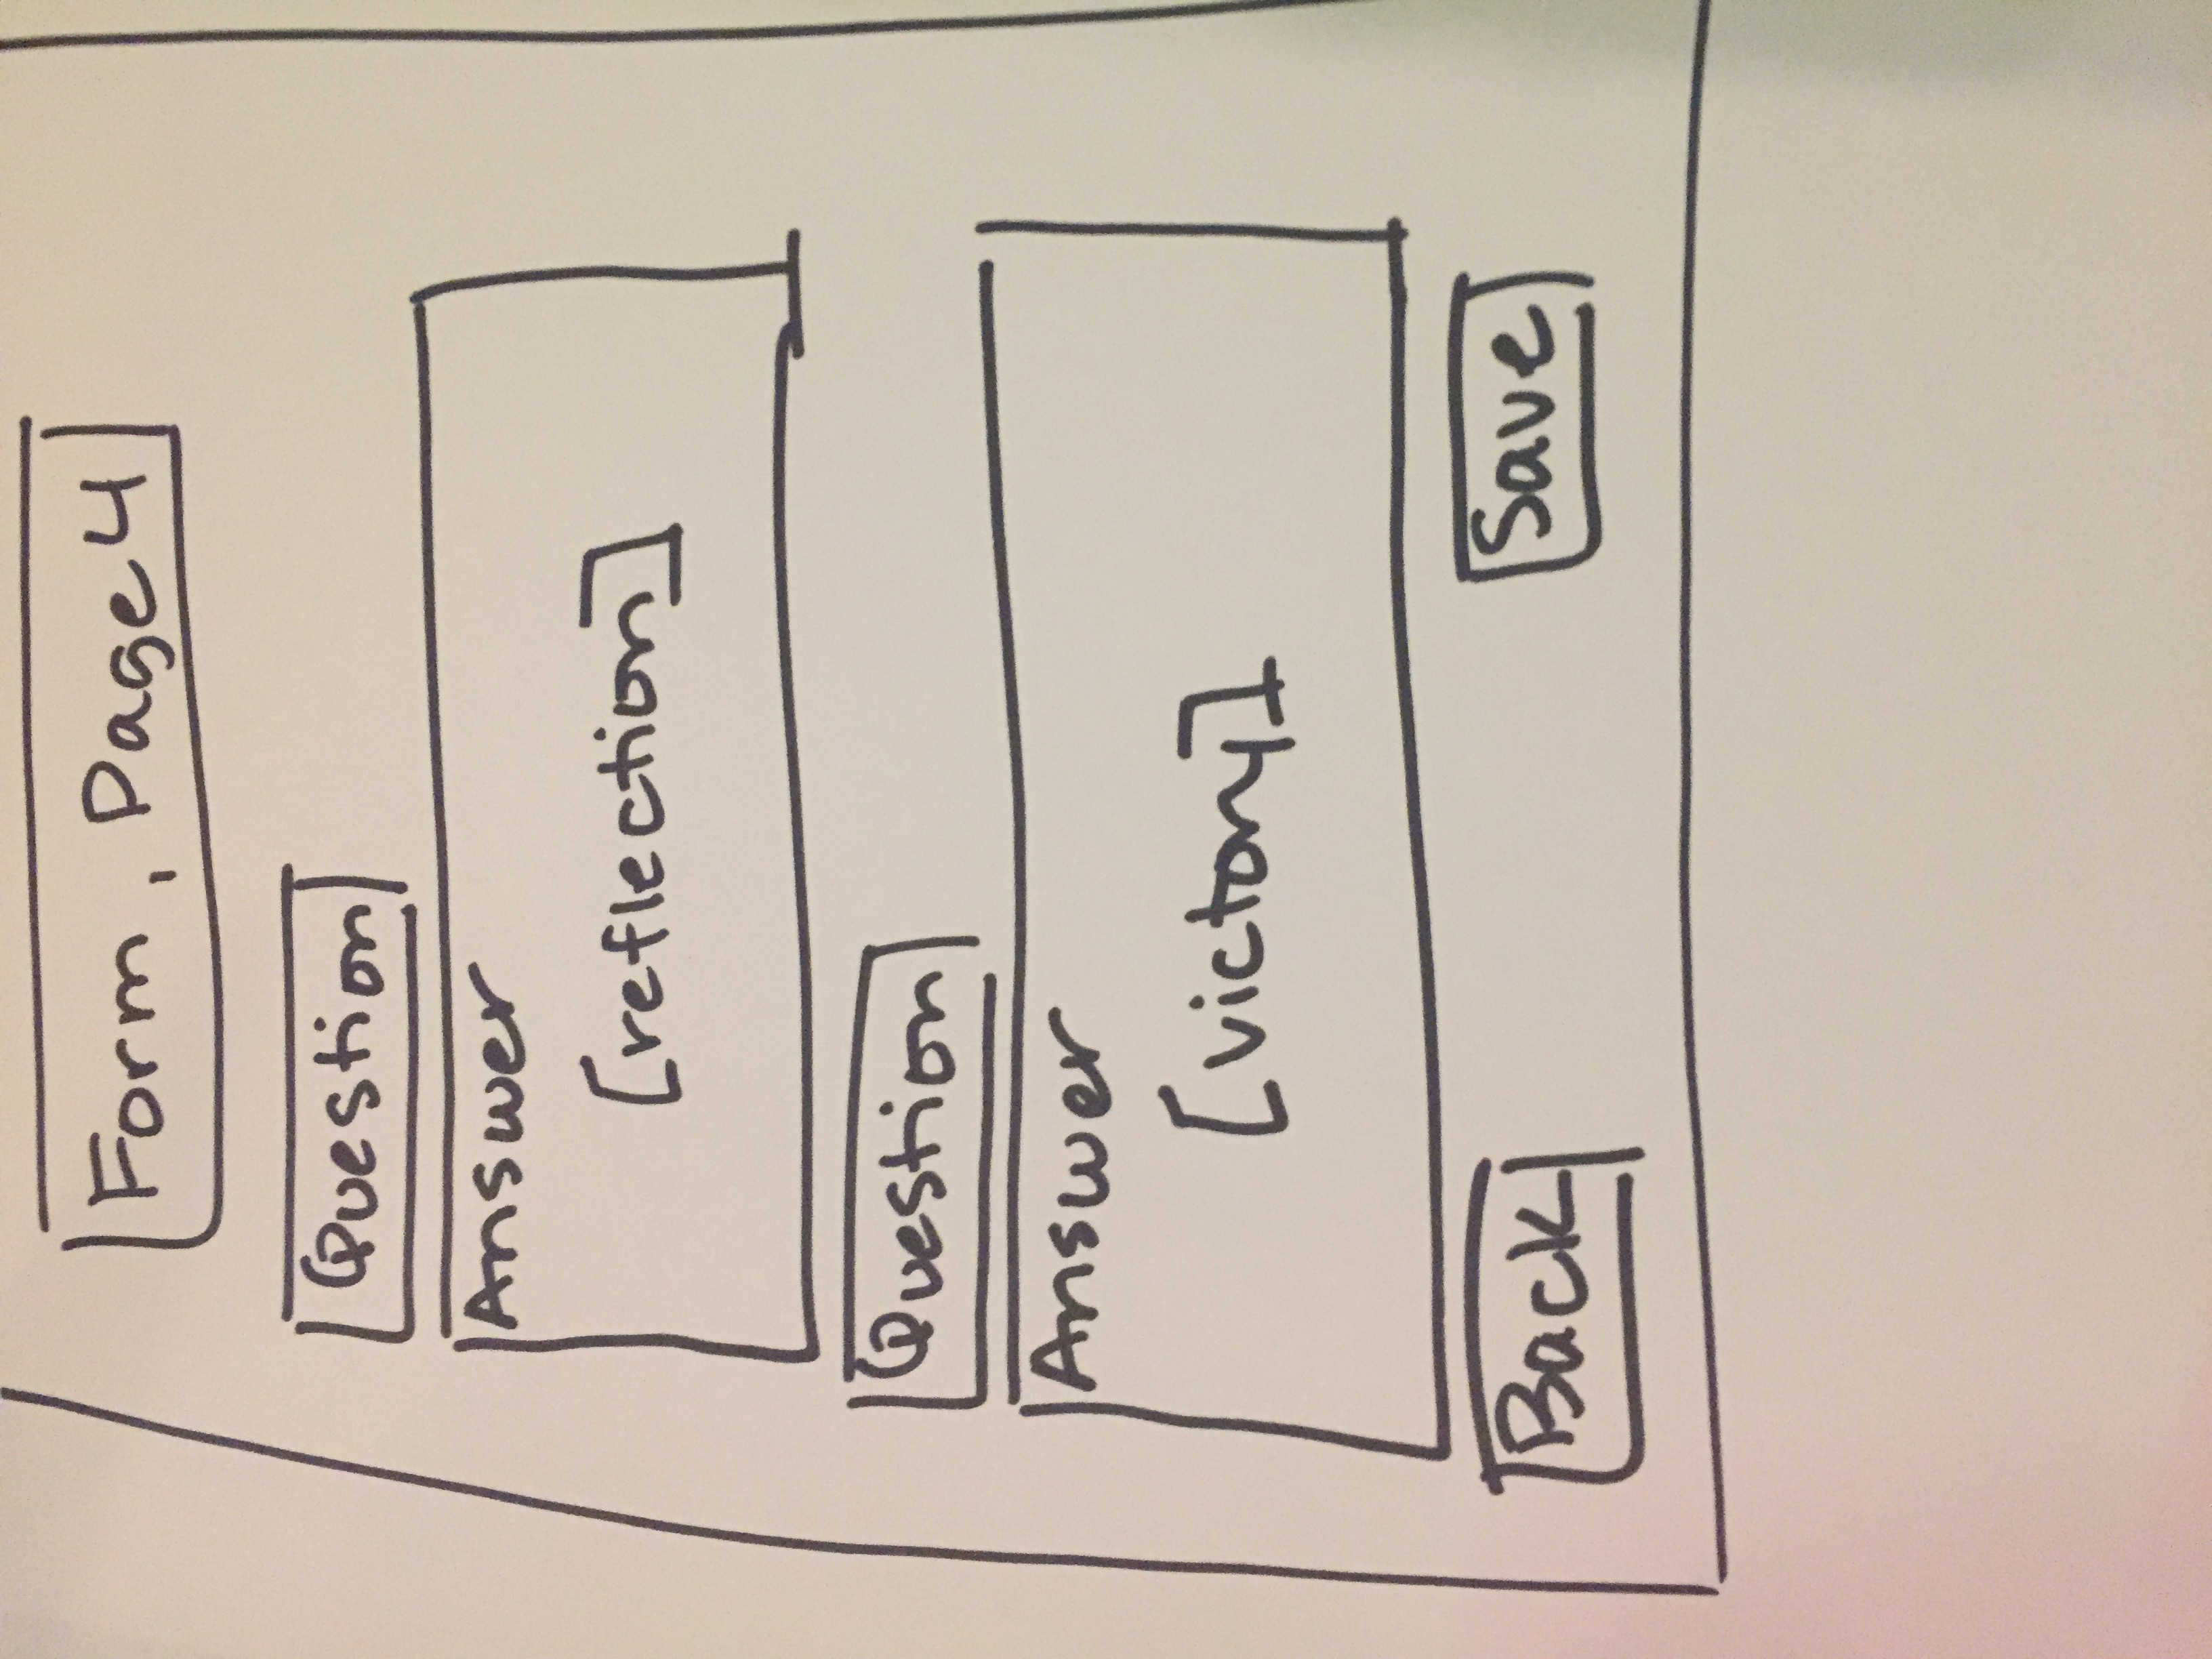 Form, Page 4
Question
Answer
[reflection]
Question
Answer
[victory]
Back
Save